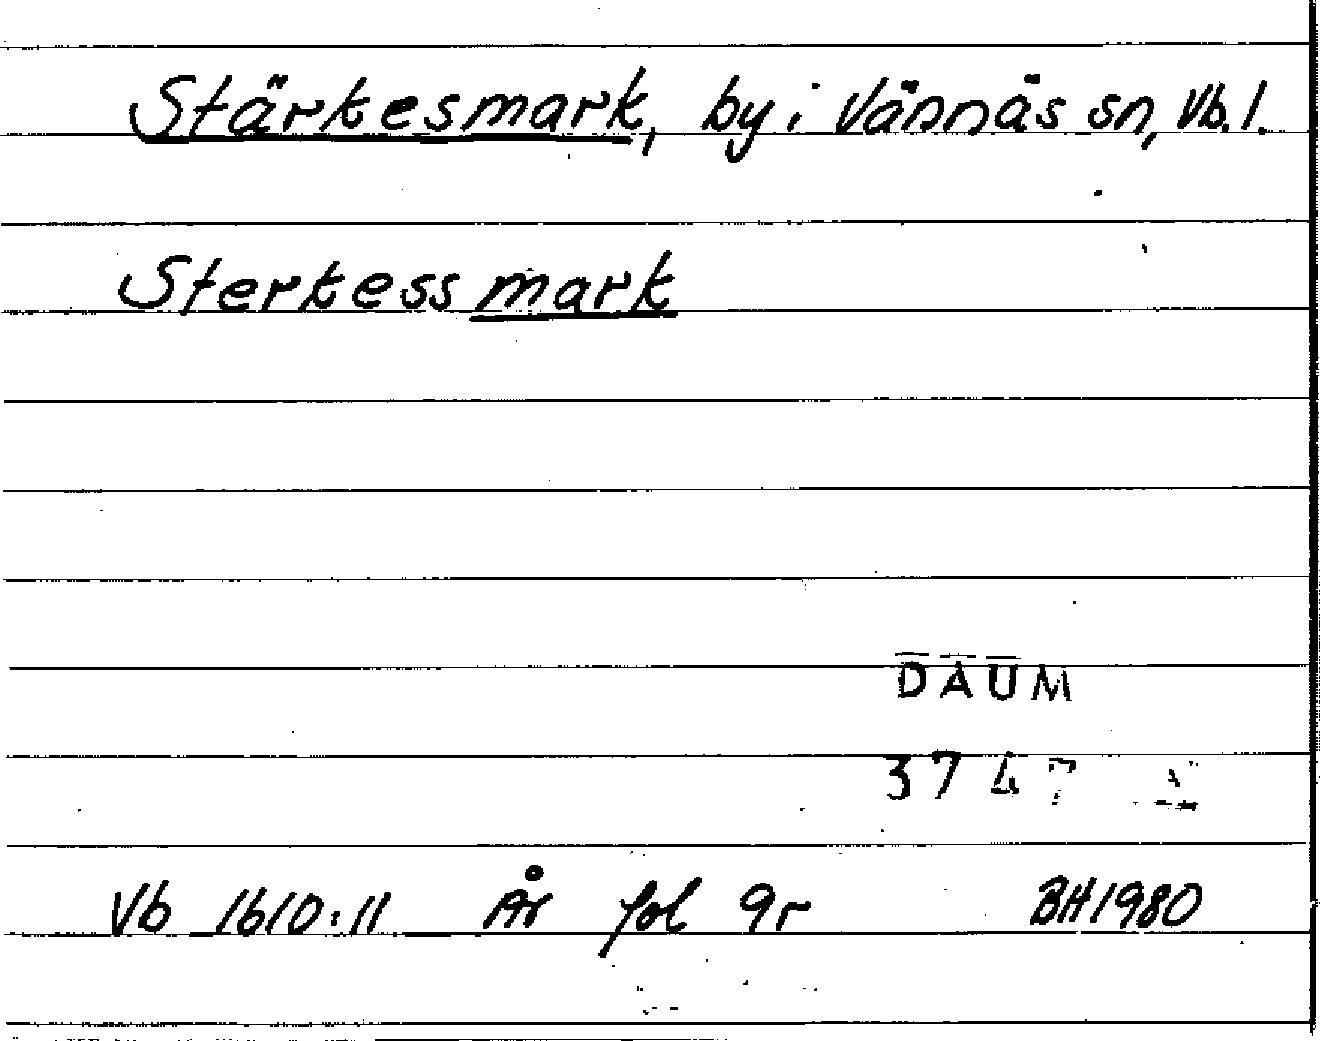 Stärkesmark, by i Vännäs sn, Vb. l.
Sterkess mark
DAUM
3747
Vb 1610:11 År fol 9r BH1980